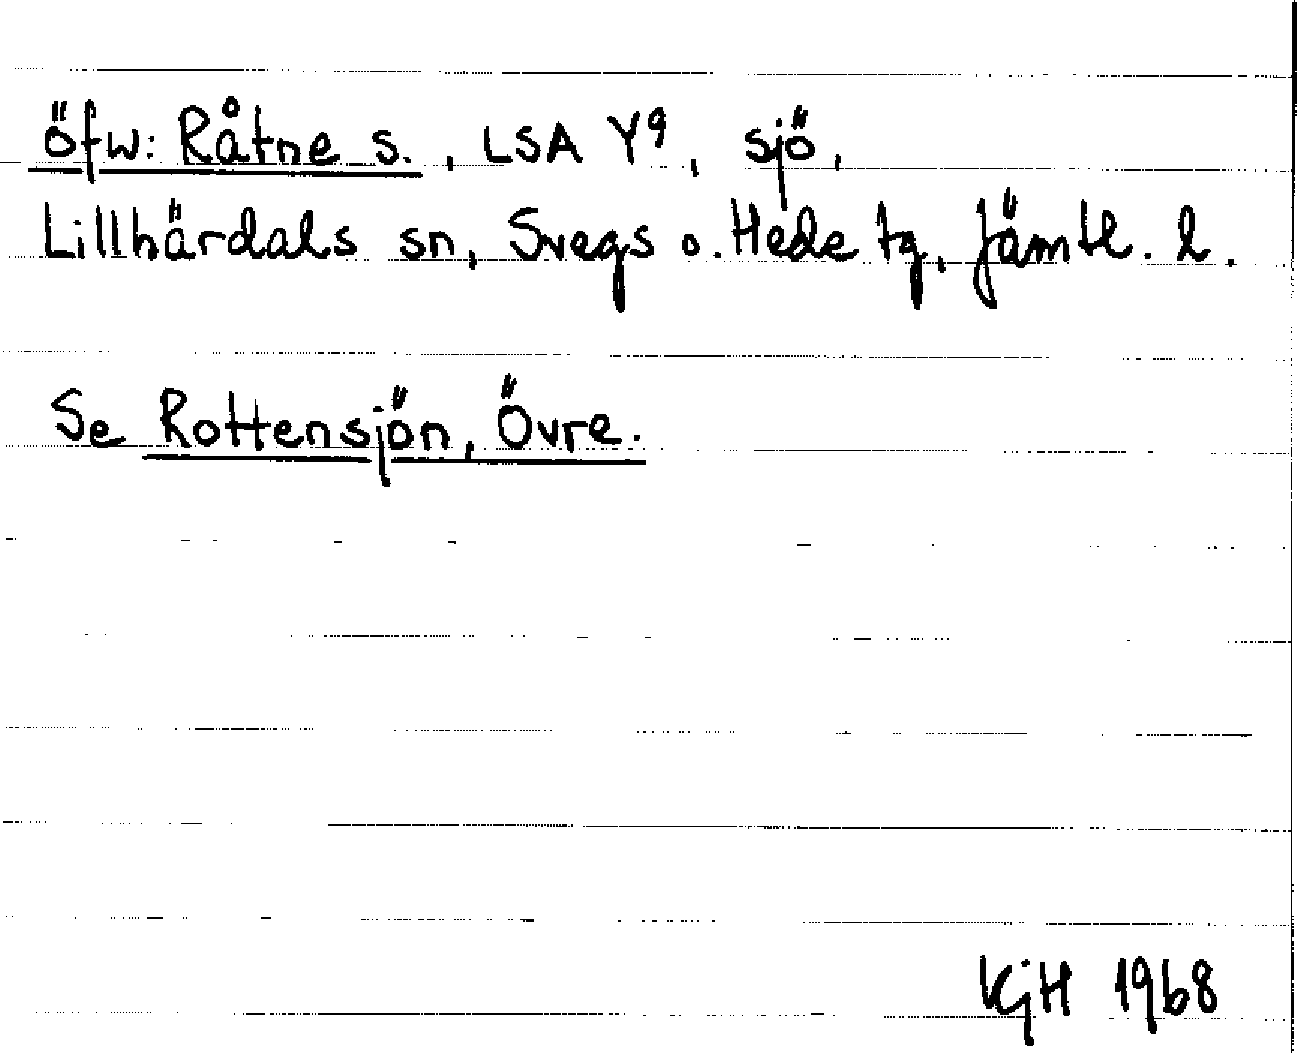 öfw: Råtne s., LSA Y9, sjö,
Lillhärdals sn, Svegs o. Hede tg, Jämtl. l.
Se Rottensjön, Övre.
KjH 1968